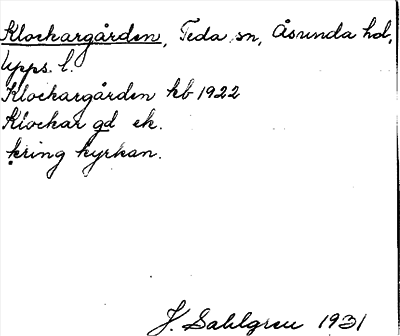 Klockargården, Teda sn, Åsunda hd,
Upps. l.
Klockargården kb 1922
Klockar gd ek.
kring kyrkan.
J. Sahlgren 1931